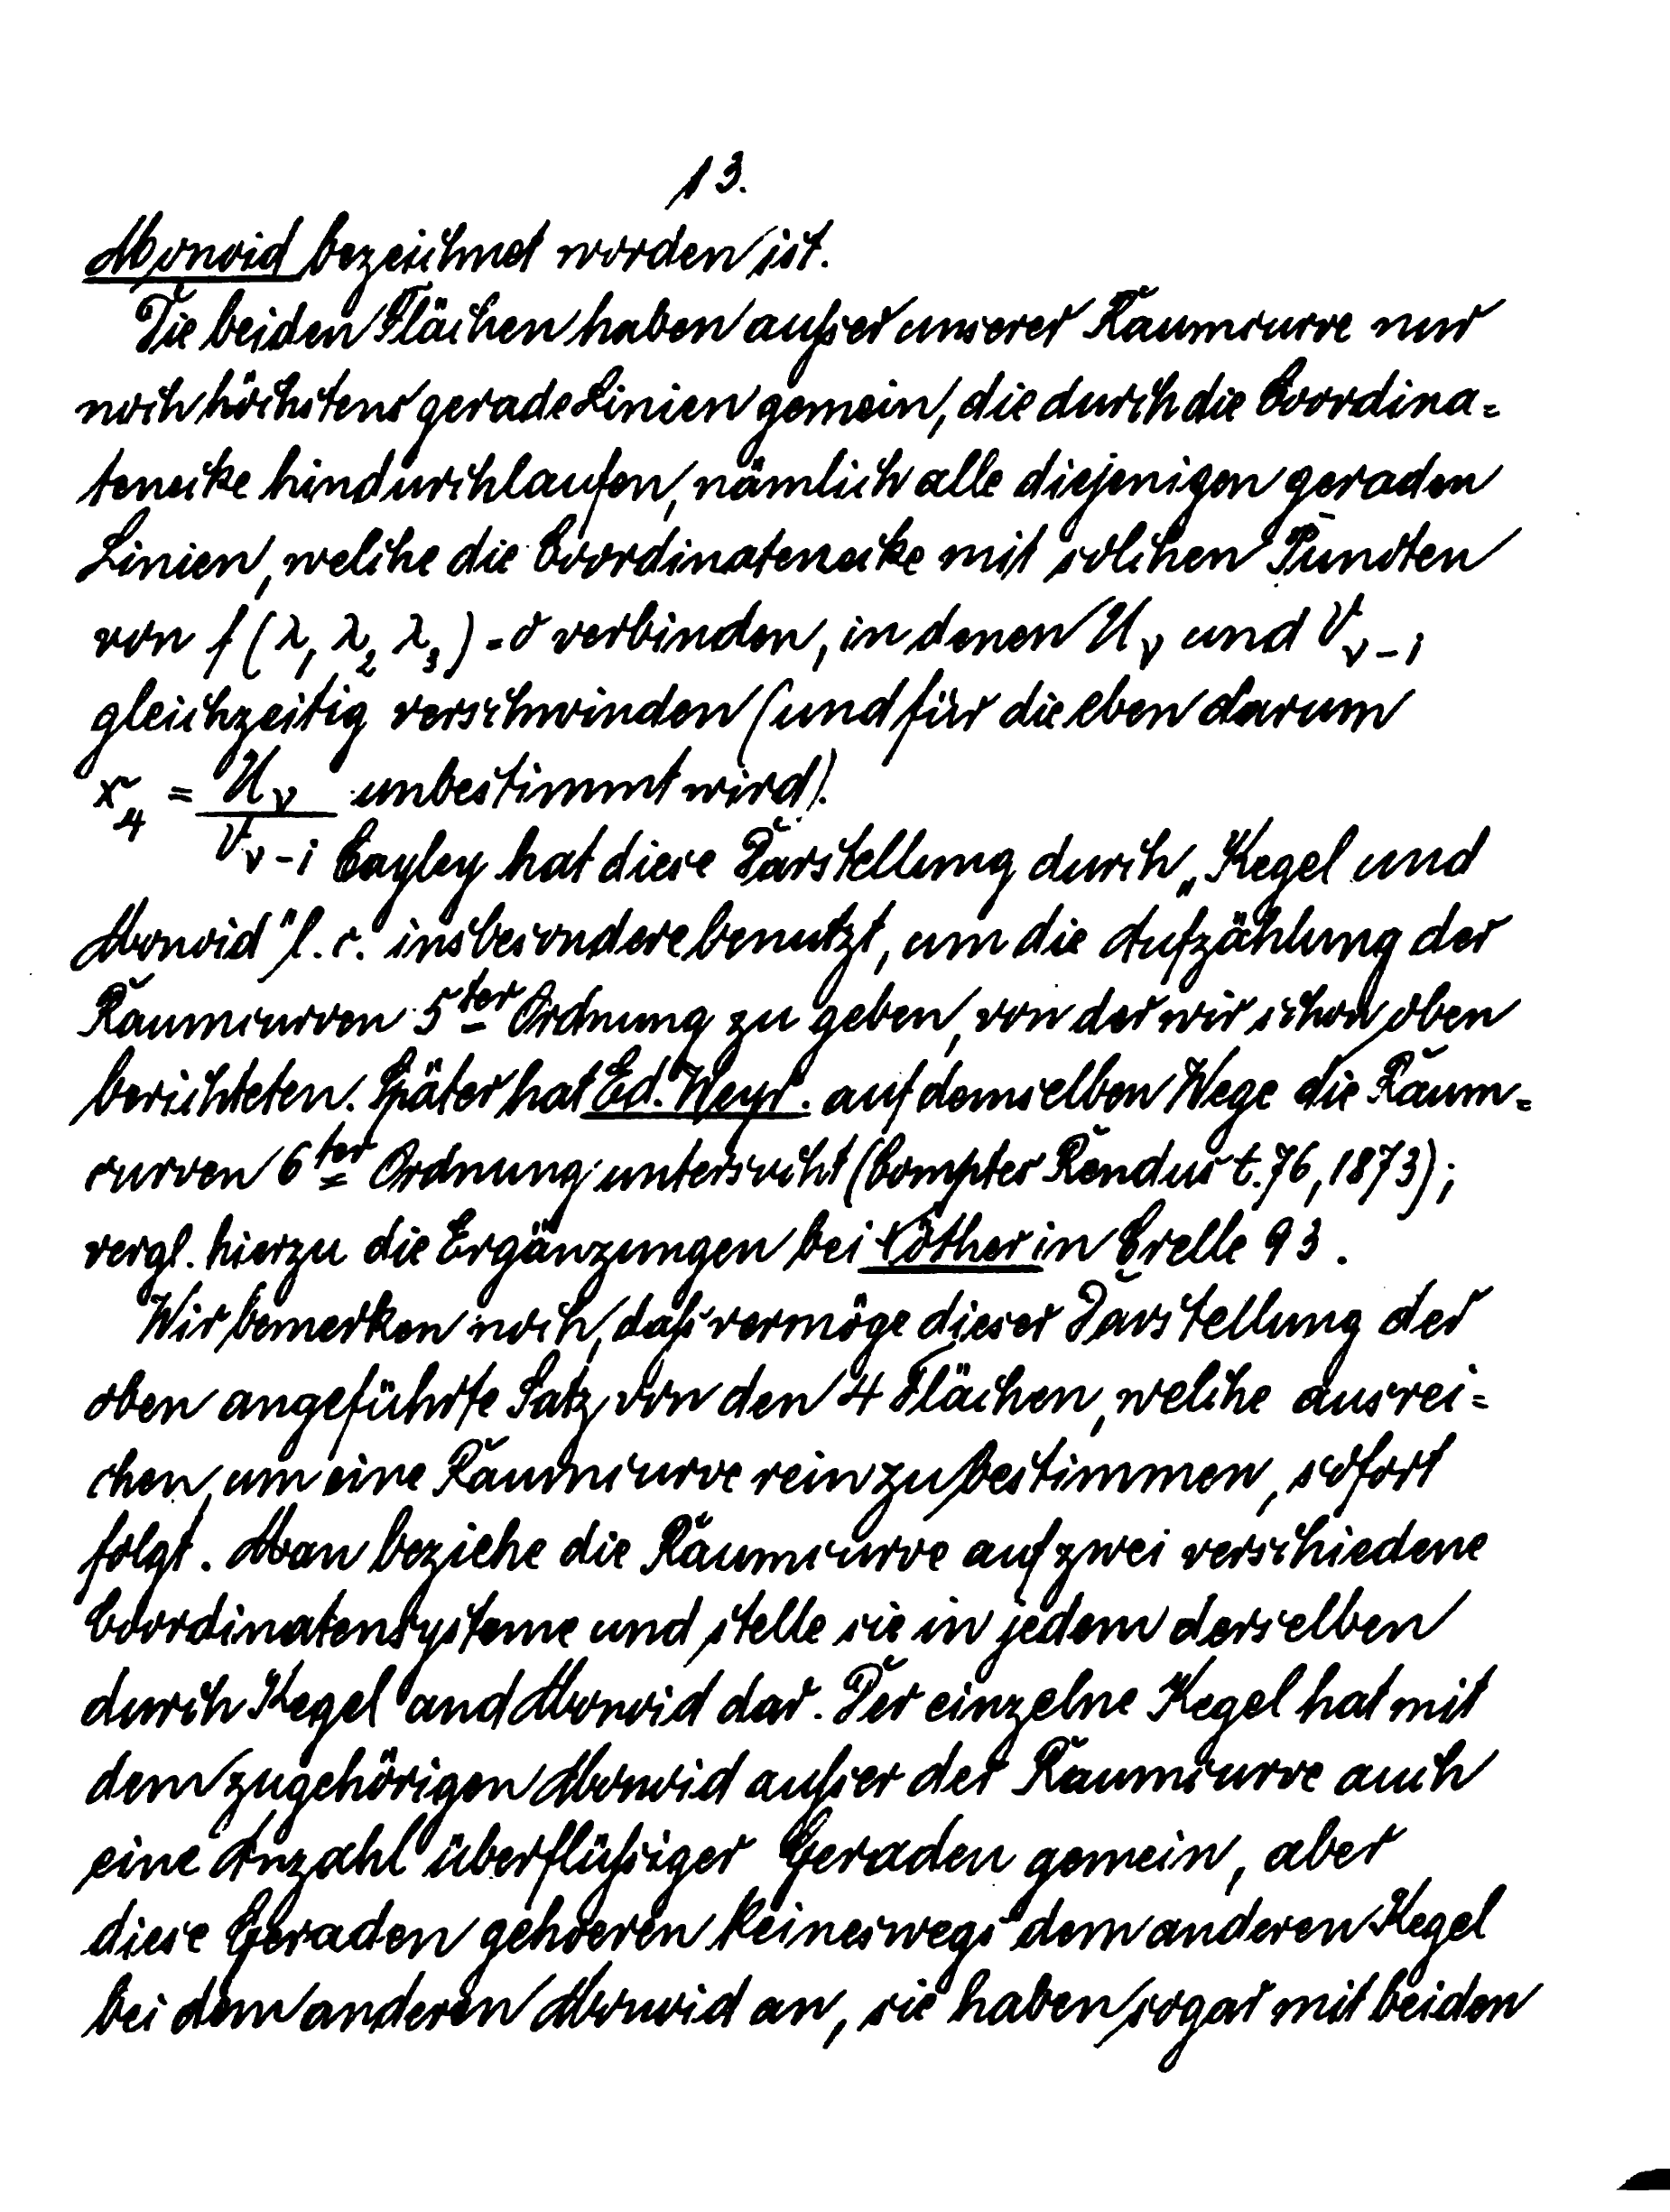 13.
Monoid bezeichnet worden ist.
Die beiden Flächen haben außer unserer Raumcurve nur
noch höchstens gerade Linien gemein, die durch die Coordina=
tenecke hindurchlaufen, nämlich alle diejenigen geraden
Linien, welche die Coordinatenecke mit solchen Puncten
von f(λ₁ λ₂ λ₃) = 0 verbinden, in denen U_ν und V_ν-1
gleichzeitig verschwinden (und für die eben darum
x₄ = U_ν / V_ν-1 unbestimmt wird).
Cayley hat diese Darstellung durch „Kegel und
Monoid" l. c. insbesondere benutzt, um die Aufzählung der
Raumcurven 5ter Ordnung zu geben, von der wir schon oben
berichteten. Später hat Ed. Weyr. auf demselben Wege die Raum=
curven 6ter Ordnung untersucht (Comptes Rendus t. 76, 1873);
vergl. hierzu die Ergänzungen bei Nöther in Crelle 93.
Wir bemerken noch, daß vermöge dieser Darstellung der
oben angeführte Satz von den 4 Flächen, welche ausrei=
chen, um eine Raumcurve rein zu bestimmen, sofort
folgt. Man beziehe die Raumcurve auf zwei verschiedene
Coordinatensysteme und stelle sie in jedem derselben
durch Kegel und Monoid dar. Der einzelne Kegel hat mit
dem zugehörigen Monoid außer der Raumcurve auch
eine Anzahl überflüßiger Geraden gemein, aber
diese Geraden gehoeren keineswegs dem anderen Kegel
bei dem anderen Monoid an, sie haben sogar mit beiden